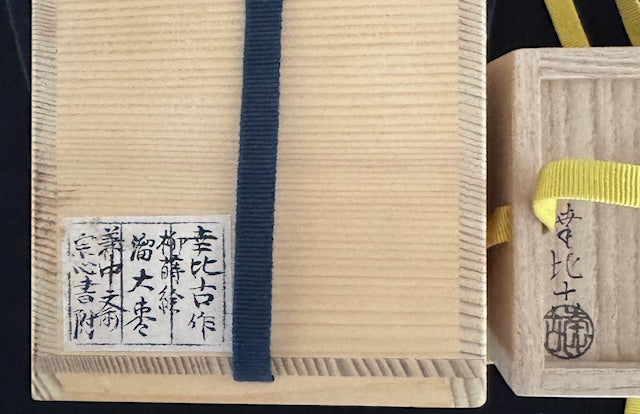 幸比古作
柳蒔絵
溜大棗
兼中斎
宗心書附
幸比古